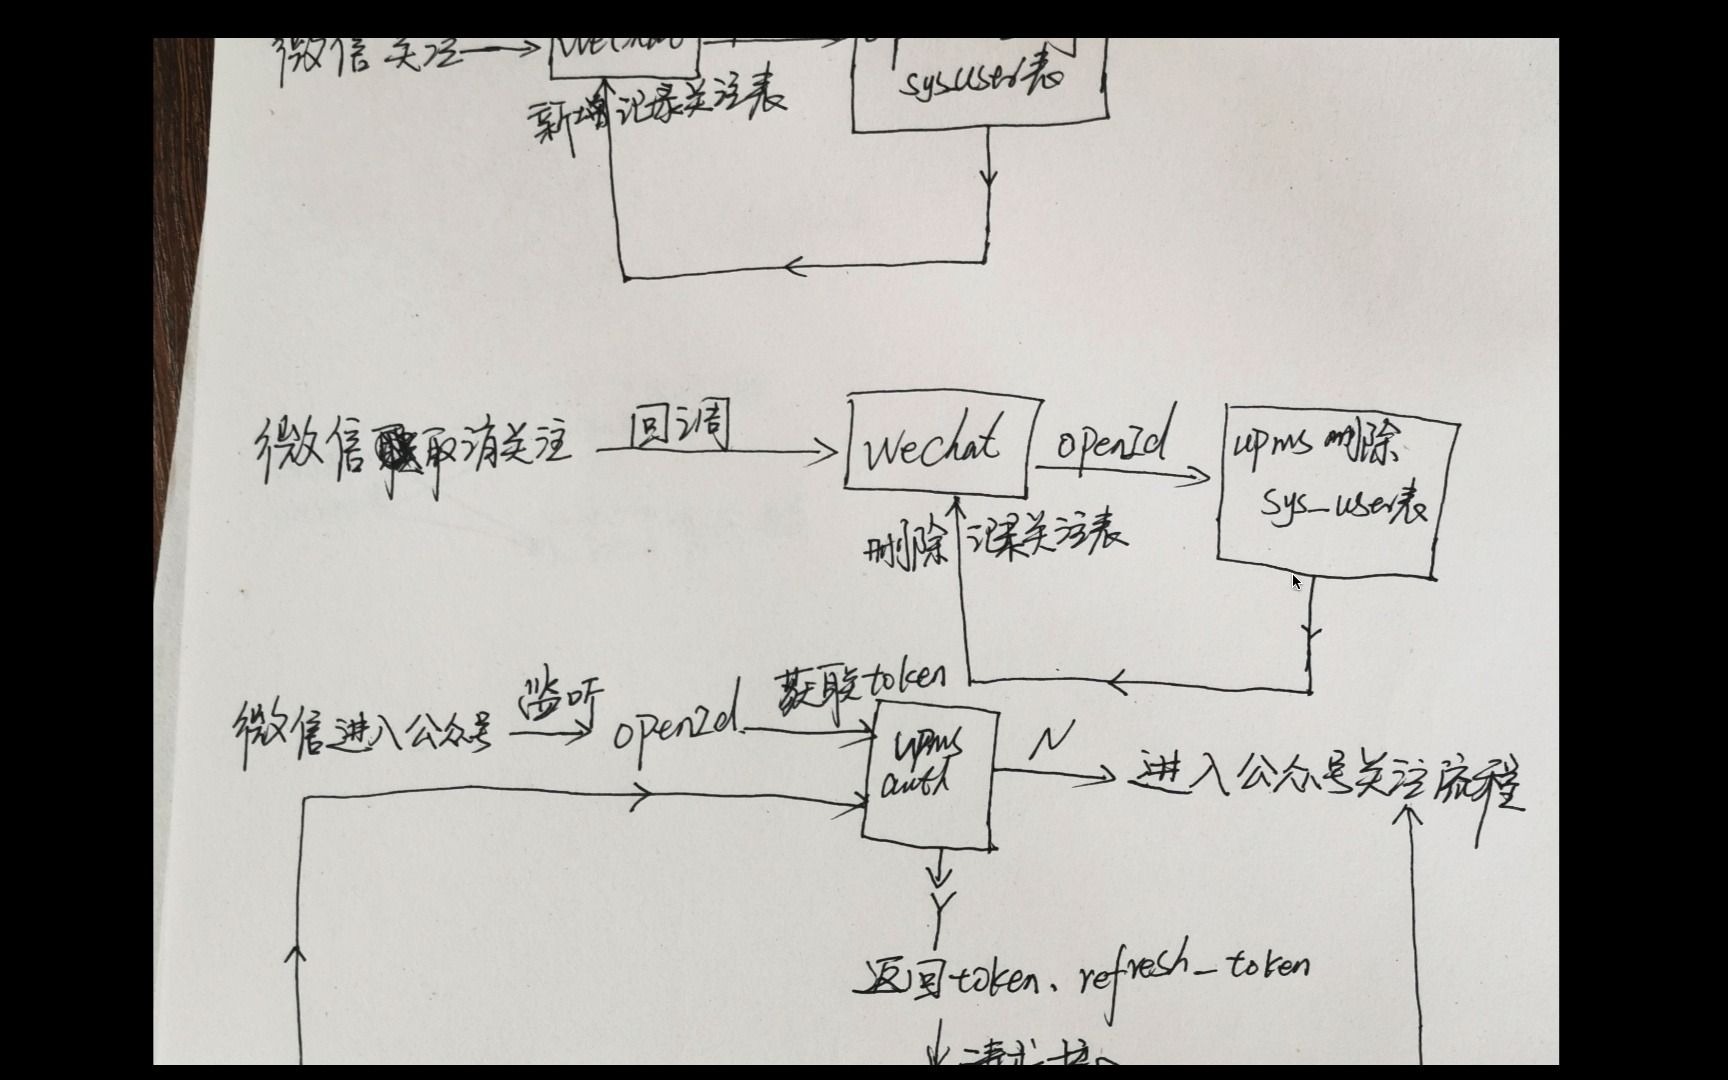 微信关注
WeChat
sysuser表
新增记录关注表
微信取消关注
回调
WeChat
openId
upms删除
sys_user表
删除记录关注表
微信进入公众号
监听
openId
获取token
upms
auth
N
进入公众号关注流程
Y
返回token、refresh_token